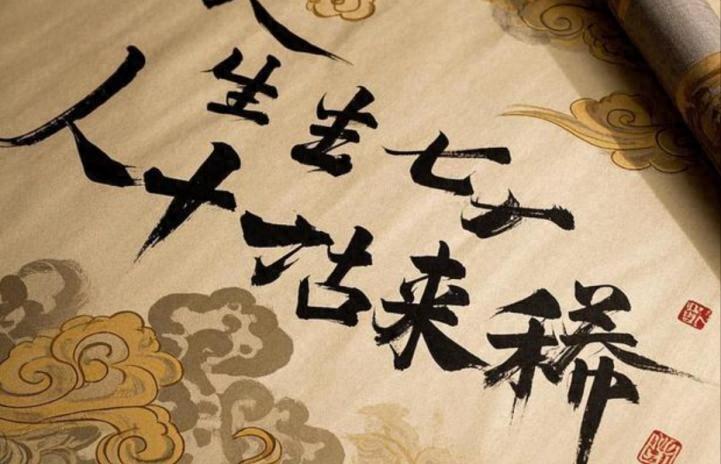 生生七
人十古来稀